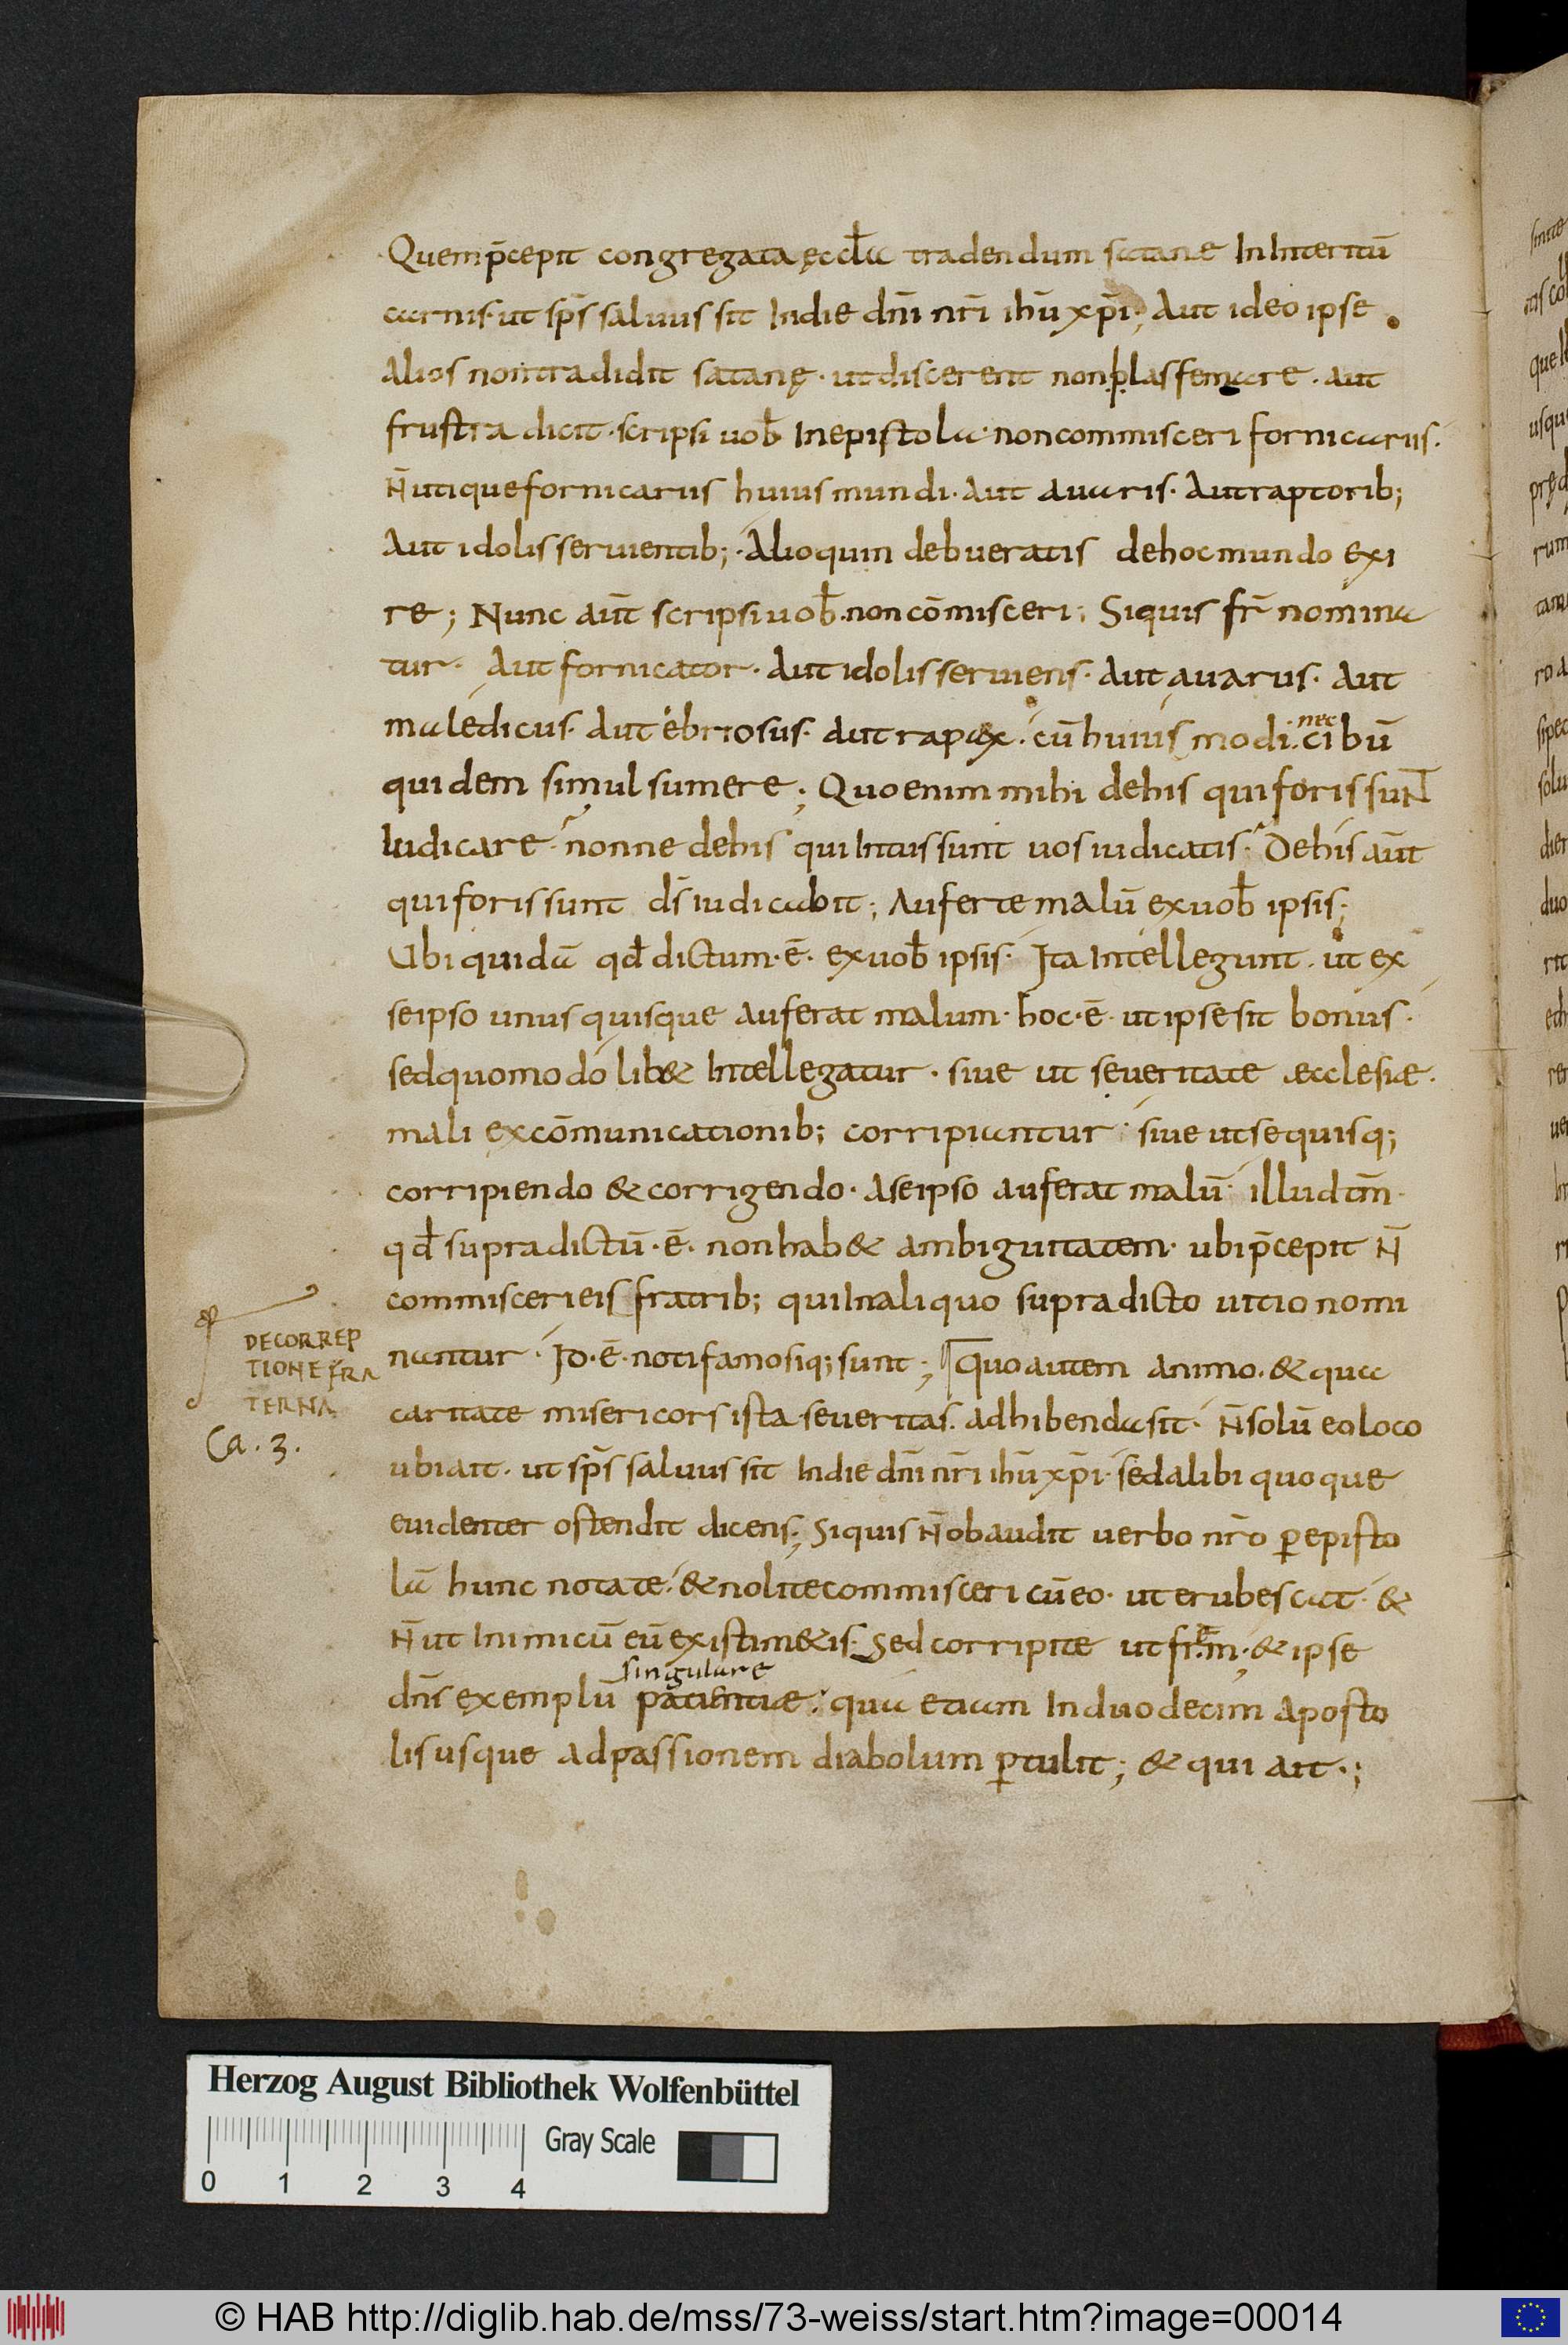 Quemp̄cepit congregata ęccl̄a tradendum satane In Interitū
carnis· ut sp̄s saluus sit Indie dn̄i nr̄i ihū xp̄i; Aut ideo ipse
Alios non tradidit satanę · ut discerent non plasfemare · aut
frustra dicit · scripsi uob̄ Inepistola· non commisceri fornicariis·
N̄ utique fornicariis huius mundi · Aut auaris · Aut raptorib;
Aut idolis seruientib; · Alioquin debueratis de hoc mundo exi
re; Nunc aūt scripsi uob̄ · non cōmisceri; Siquis fr̄ nomina
tur · Aut fornicator · Aut idolis seruiens · Aut auarus · Aut
maledicus · Aut ebriosus · Aut rapax · cū huius modi · nec cibū
quidem simul sumere; Quo enim mihi de his qui foris suN̄
Iudicare · nonne de his qui Intus sunt uos iudicatis · De his aūt
qui foris sunt ds̄ iudicabit; Auferte malū ex uob̄ ipsis;
Ubi quidā qd̄ dictum · ē · ex uob̄ ipsis · Ita Intellegunt · ut ex
se ipso unus quisque auferat malum · hoc · ē · ut ipse sit bonus ·
sed quomodo lib& Intellegatur · siue ut seueritate aecclesiae ·
mali excōmunicationib; corripiantur · siue ut se quisq;
corripiendo & corrigendo · A se ipso auferat malū · illud tm̄ ·
qd̄ supra dictū · ē · non hab& ambiguitatem · ubi p̄cepit N̄
commisceri eis fratrib; qui In aliquo supra dicto uitio nomi
nantur · ID · ē · noti famosiq; sunt; Quo autem animo · & qua
DECORREP
TIONE FRA
TERNA
Ca . 3 .
caritate misericors ista seueritas · adhibenda sit · N̄ solū eo loco
ubi ait · ut sp̄s saluus sit Indie dn̄i nr̄i ihū xp̄i · sed alibi quoque
euidenter ostendit dicens; Siquis N̄ obaudit uerbo nr̄o p̱ episto
lā hunc notate · & nolite commisceri cū eo · ut erubescat · &
N̄ ut Inimicū eū existim&is; Sed corripite ut frēm; & ipse
singulare
dn̄s exemplū patientiae · qua etiam In duodecim aposto
lis usque ad passionem diabolum p̱tulit; & qui ait · ;
Herzog August Bibliothek Wolfenbüttel
0 1 2 3 4 Gray Scale
© HAB http://diglib.hab.de/mss/73-weiss/start.htm?image=00014